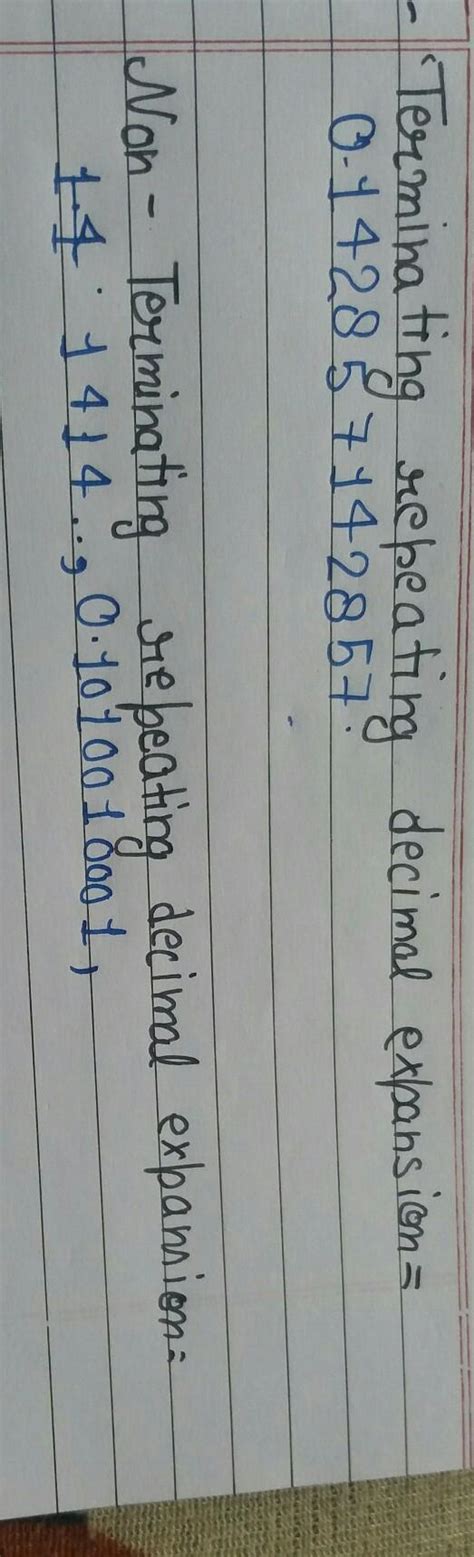 - Terminating repeating decimal expansion=
0.142857142857.
Non - Terminating repeating decimal expansion=
1.4. 1414..., 0.101001 0001,